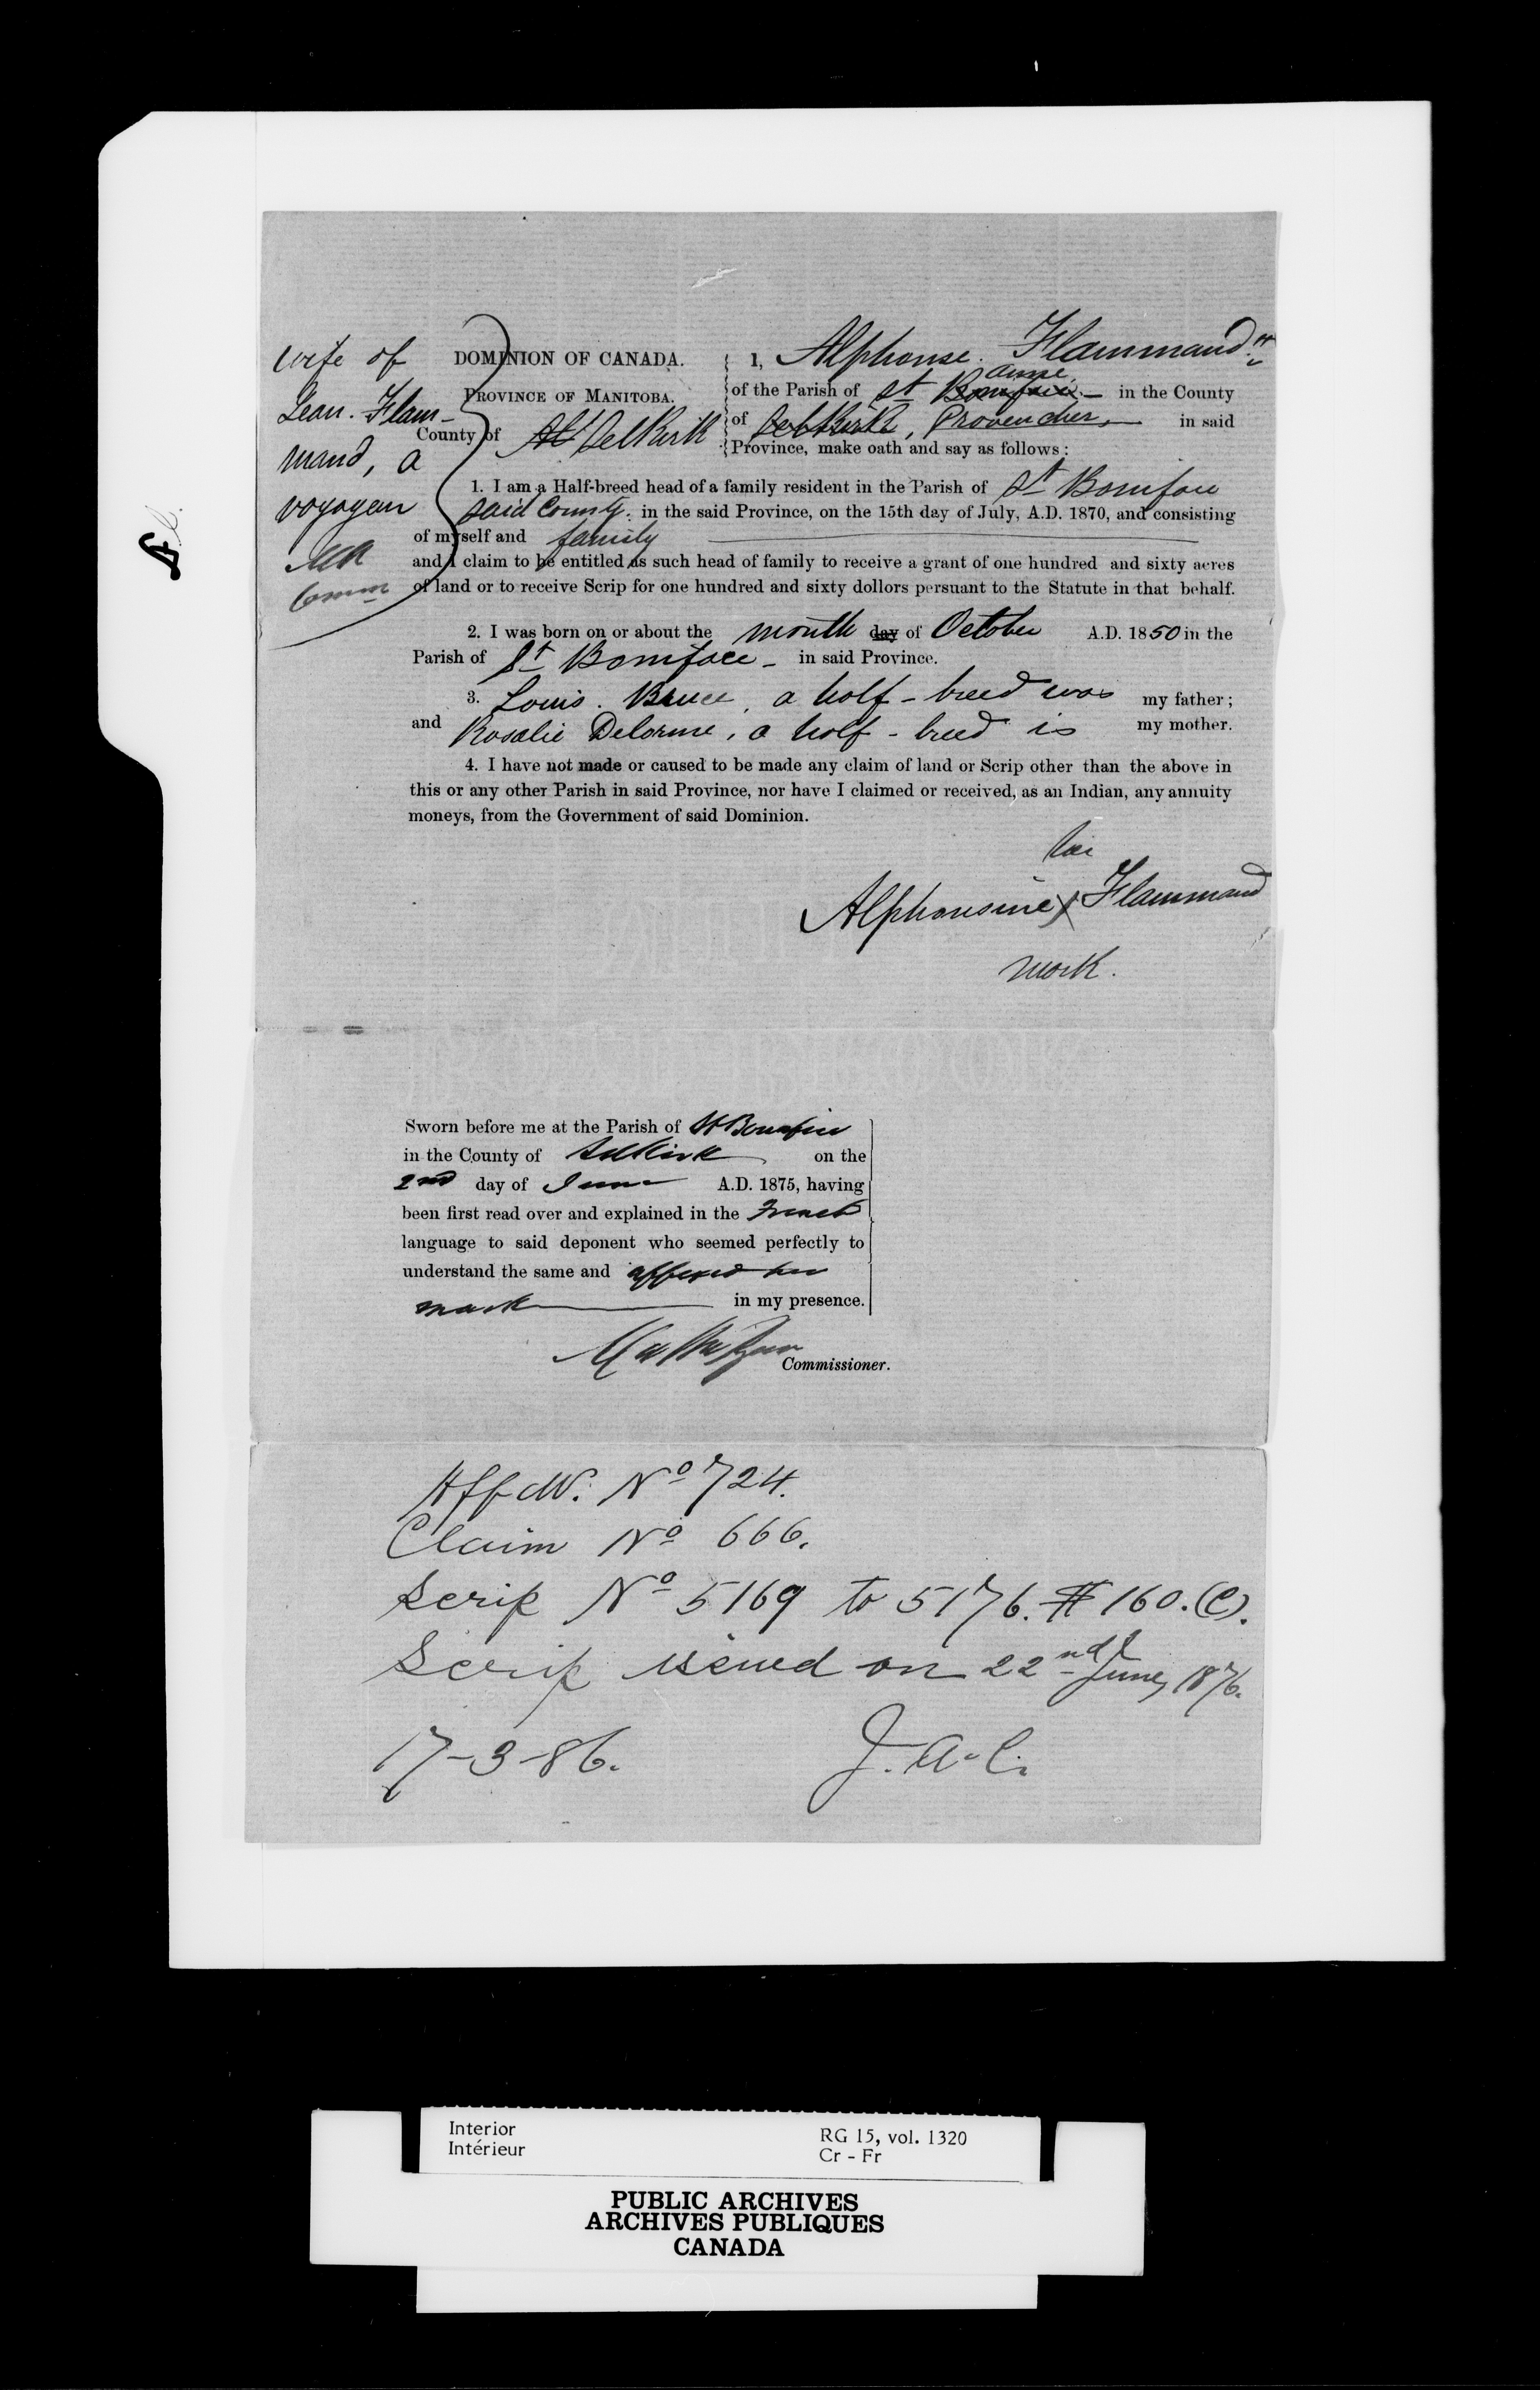 wife of
Jean. Flam-
mand, a
voyageur
MR
Comm
DOMINION OF CANADA.
PROVINCE OF MANITOBA.
County of Selkirk
I, Alphonse. Flammand
of the Parish of St Boniface anne in the County
of Selkirk, Provencher, in said
Province, make oath and say as follows:
1. I am a Half-breed head of a family resident in the Parish of St Boniface
said County. in the said Province, on the 15th day of July, A.D. 1870, and consisting
of myself and family
and I claim to be entitled as such head of family to receive a grant of one hundred and sixty acres
of land or to receive Scrip for one hundred and sixty dollors persuant to the Statute in that behalf.
2. I was born on or about the month day of October A.D. 1850 in the
Parish of St Boniface - in said Province.
3. Louis. Bruce, a half-breed was my father;
and Rosalie Delorme, a half-breed is my mother.
4. I have not made or caused to be made any claim of land or Scrip other than the above in
this or any other Parish in said Province, nor have I claimed or received, as an Indian, any annuity
moneys, from the Government of said Dominion.
her
Alphonsine X Flammand
mark.
Sworn before me at the Parish of St Boniface
in the County of Selkirk on the
2nd day of June A.D. 1875, having
been first read over and explained in the French
language to said deponent who seemed perfectly to
understand the same and affixed her
mark in my presence.
Commissioner.
Affdt. No 724.
Claim No 666.
Scrip No 5169 to 5176. $160.(C).
Scrip issued on 22nd June, 1876.
17-3-86. J.A.C.
Interior
Intérieur
RG 15, vol. 1320
Cr - Fr
PUBLIC ARCHIVES
ARCHIVES PUBLIQUES
CANADA